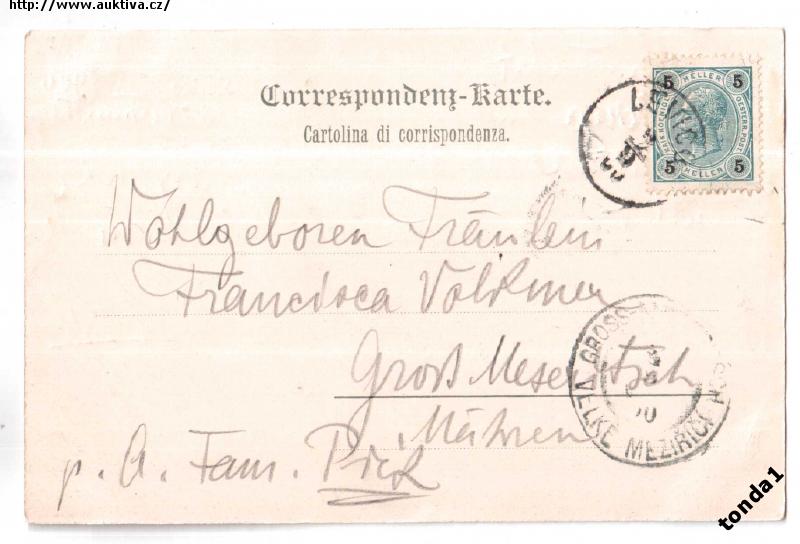 http://www.auktiva.cz/
Correspondenz-Karte.
Cartolina di corrispondenza.
5 HELLER 5
OESTERR. POST.
5 HELLER 5
LEVICO
Wohlgeboren Fräulein
Francisca Volkmer
Gross Meseritsch
Mähren
p. A. Fam. Pick
GROSS-
VELKÉ MEZIŘÍČÍ
00
tonda1